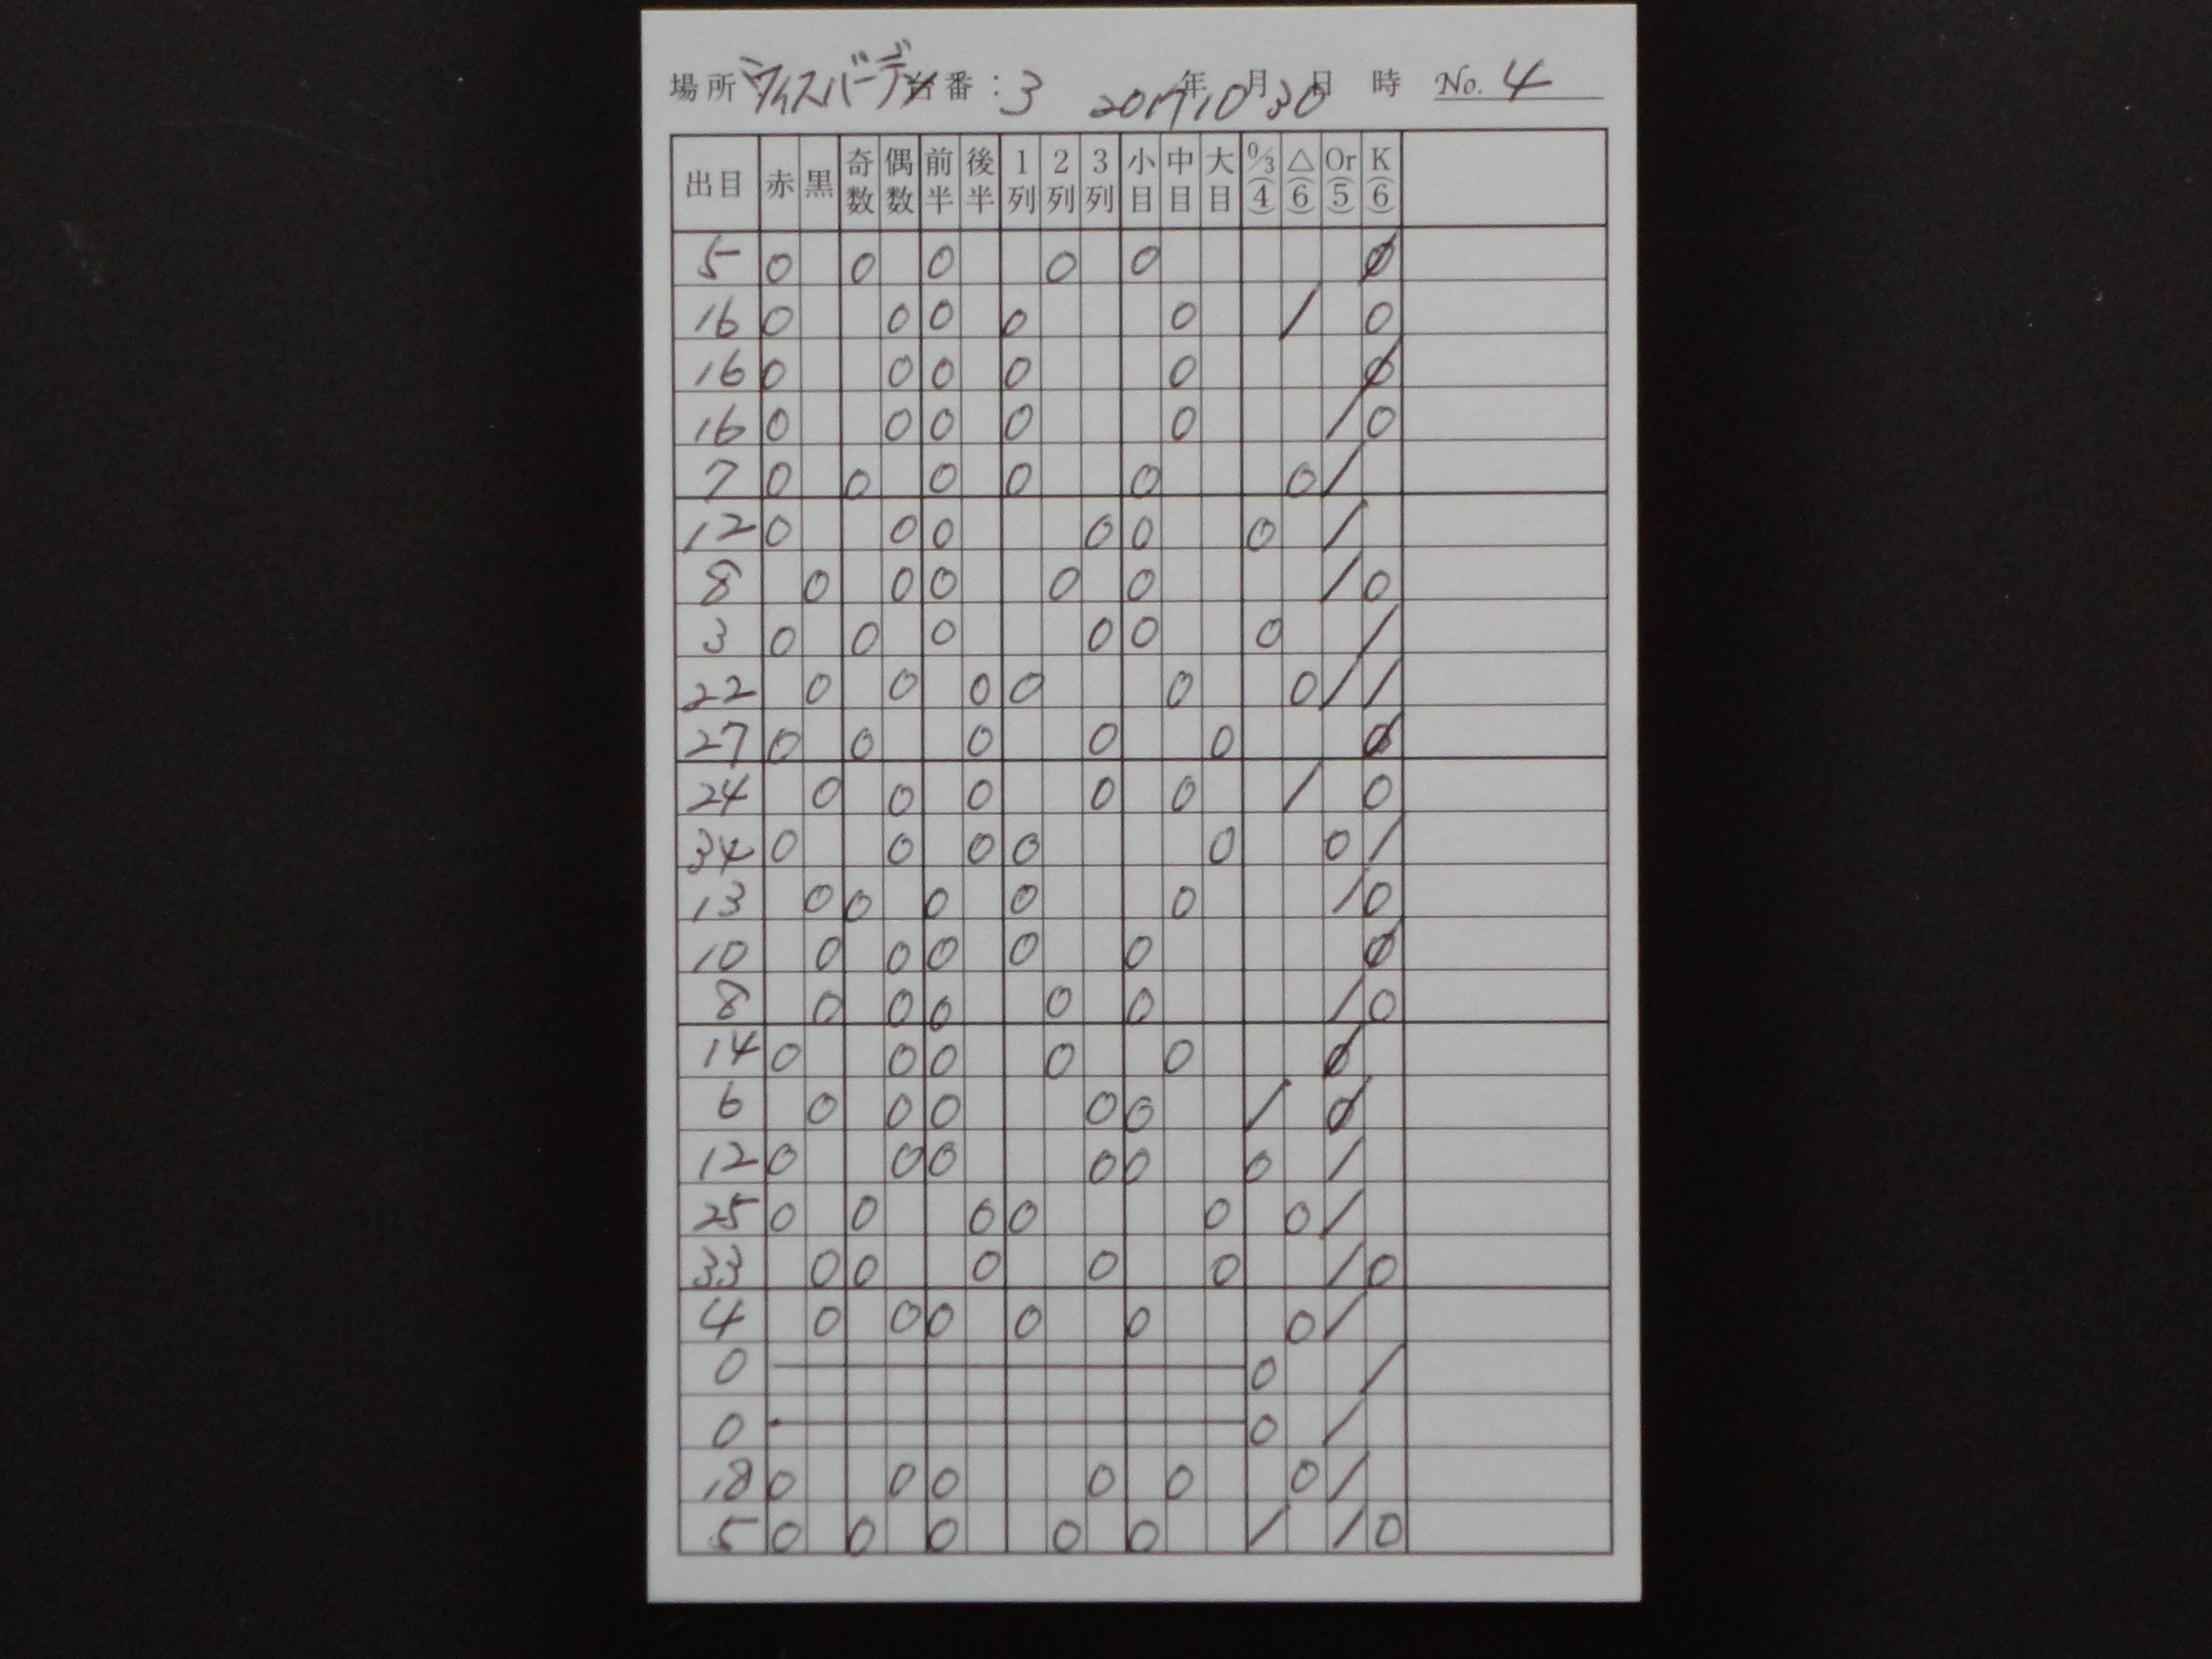 場所 ラスベガス 台番：3 2017年10月30日 時 No. 4
出目 赤 黒 奇数 偶数 前半 後半 1列 2列 3列 小目 中目 大目 0/3(4) △(6) Or(5) K(6)
5 0 0 0 0 0 Ø
16 0 0 0 0 0 / 0
16 0 0 0 0 0 Ø
16 0 0 0 0 0 / 0
7 0 0 0 0 0 0 /
12 0 0 0 0 0 0 /
8 0 0 0 0 0 / 0
3 0 0 0 0 0 0 /
22 0 0 0 0 0 0 / /
27 0 0 0 0 0 Ø
24 0 0 0 0 0 / 0
34 0 0 0 0 0 0 /
13 0 0 0 0 0 / 0
10 0 0 0 0 0 Ø
8 0 0 0 0 0 / 0
14 0 0 0 0 0 Ø
6 0 0 0 0 0 / Ø
12 0 0 0 0 0 0 /
25 0 0 0 0 0 0 /
33 0 0 0 0 0 / 0
4 0 0 0 0 0 0 /
0 0 /
0 0 /
18 0 0 0 0 0 0 /
5 0 0 0 0 0 / / 0